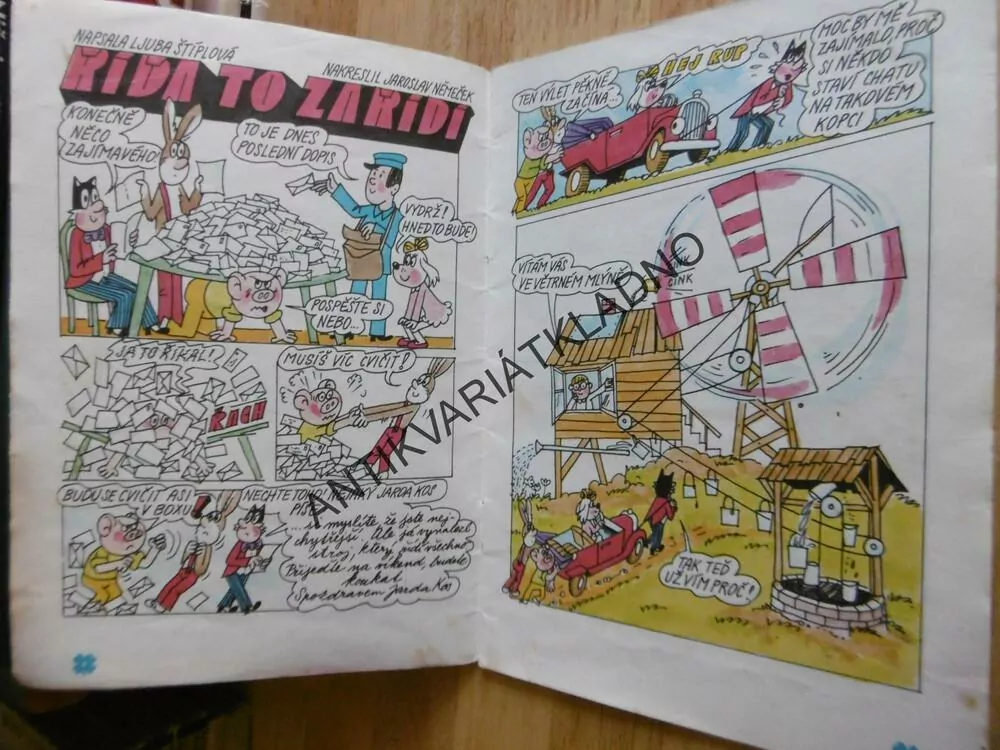 NAPSALA LJUBA ŠTÍPLOVÁ
NAKRESLIL JAROSLAV NĚMEČEK
ŘÍĎA TO ZAŘÍDÍ
KONEČNĚ
NĚCO
ZAJÍMAVÉHO
TO JE DNES
POSLEDNÍ DOPIS
VYDRŽ!
HNED TO BUDE!
POSPĚŠTE SI
NEBO...
JÁ TO ŘÍKAL!
RACH
MUSÍŠ VÍC CVIČIT!
BUDU SE CVIČIT ASI
V BOXU
NECHTE TOHO! NĚJAKÝ JARDA KOS
PÍŠE
... si myslíte, že jste nej-
chytřejší. Ale já vynalezl
stroj, který řídí všechno
Přijeďte na víkend, budete
koukat
S pozdravem Jarda Kos
TEN VÝLET PĚKNĚ
ZAČÍNÁ...
HEJ RUP
MOC BY MĚ
ZAJÍMALO, PROČ
SI NĚKDO
STAVÍ CHATU
NA TAKOVÉM
KOPCI
VÍTÁM VÁS
VE VĚTRNÉM MLÝNĚ
CINK
TAK TEĎ
UŽ VÍM PROČ!
ANTIKVARIÁT KLADNO